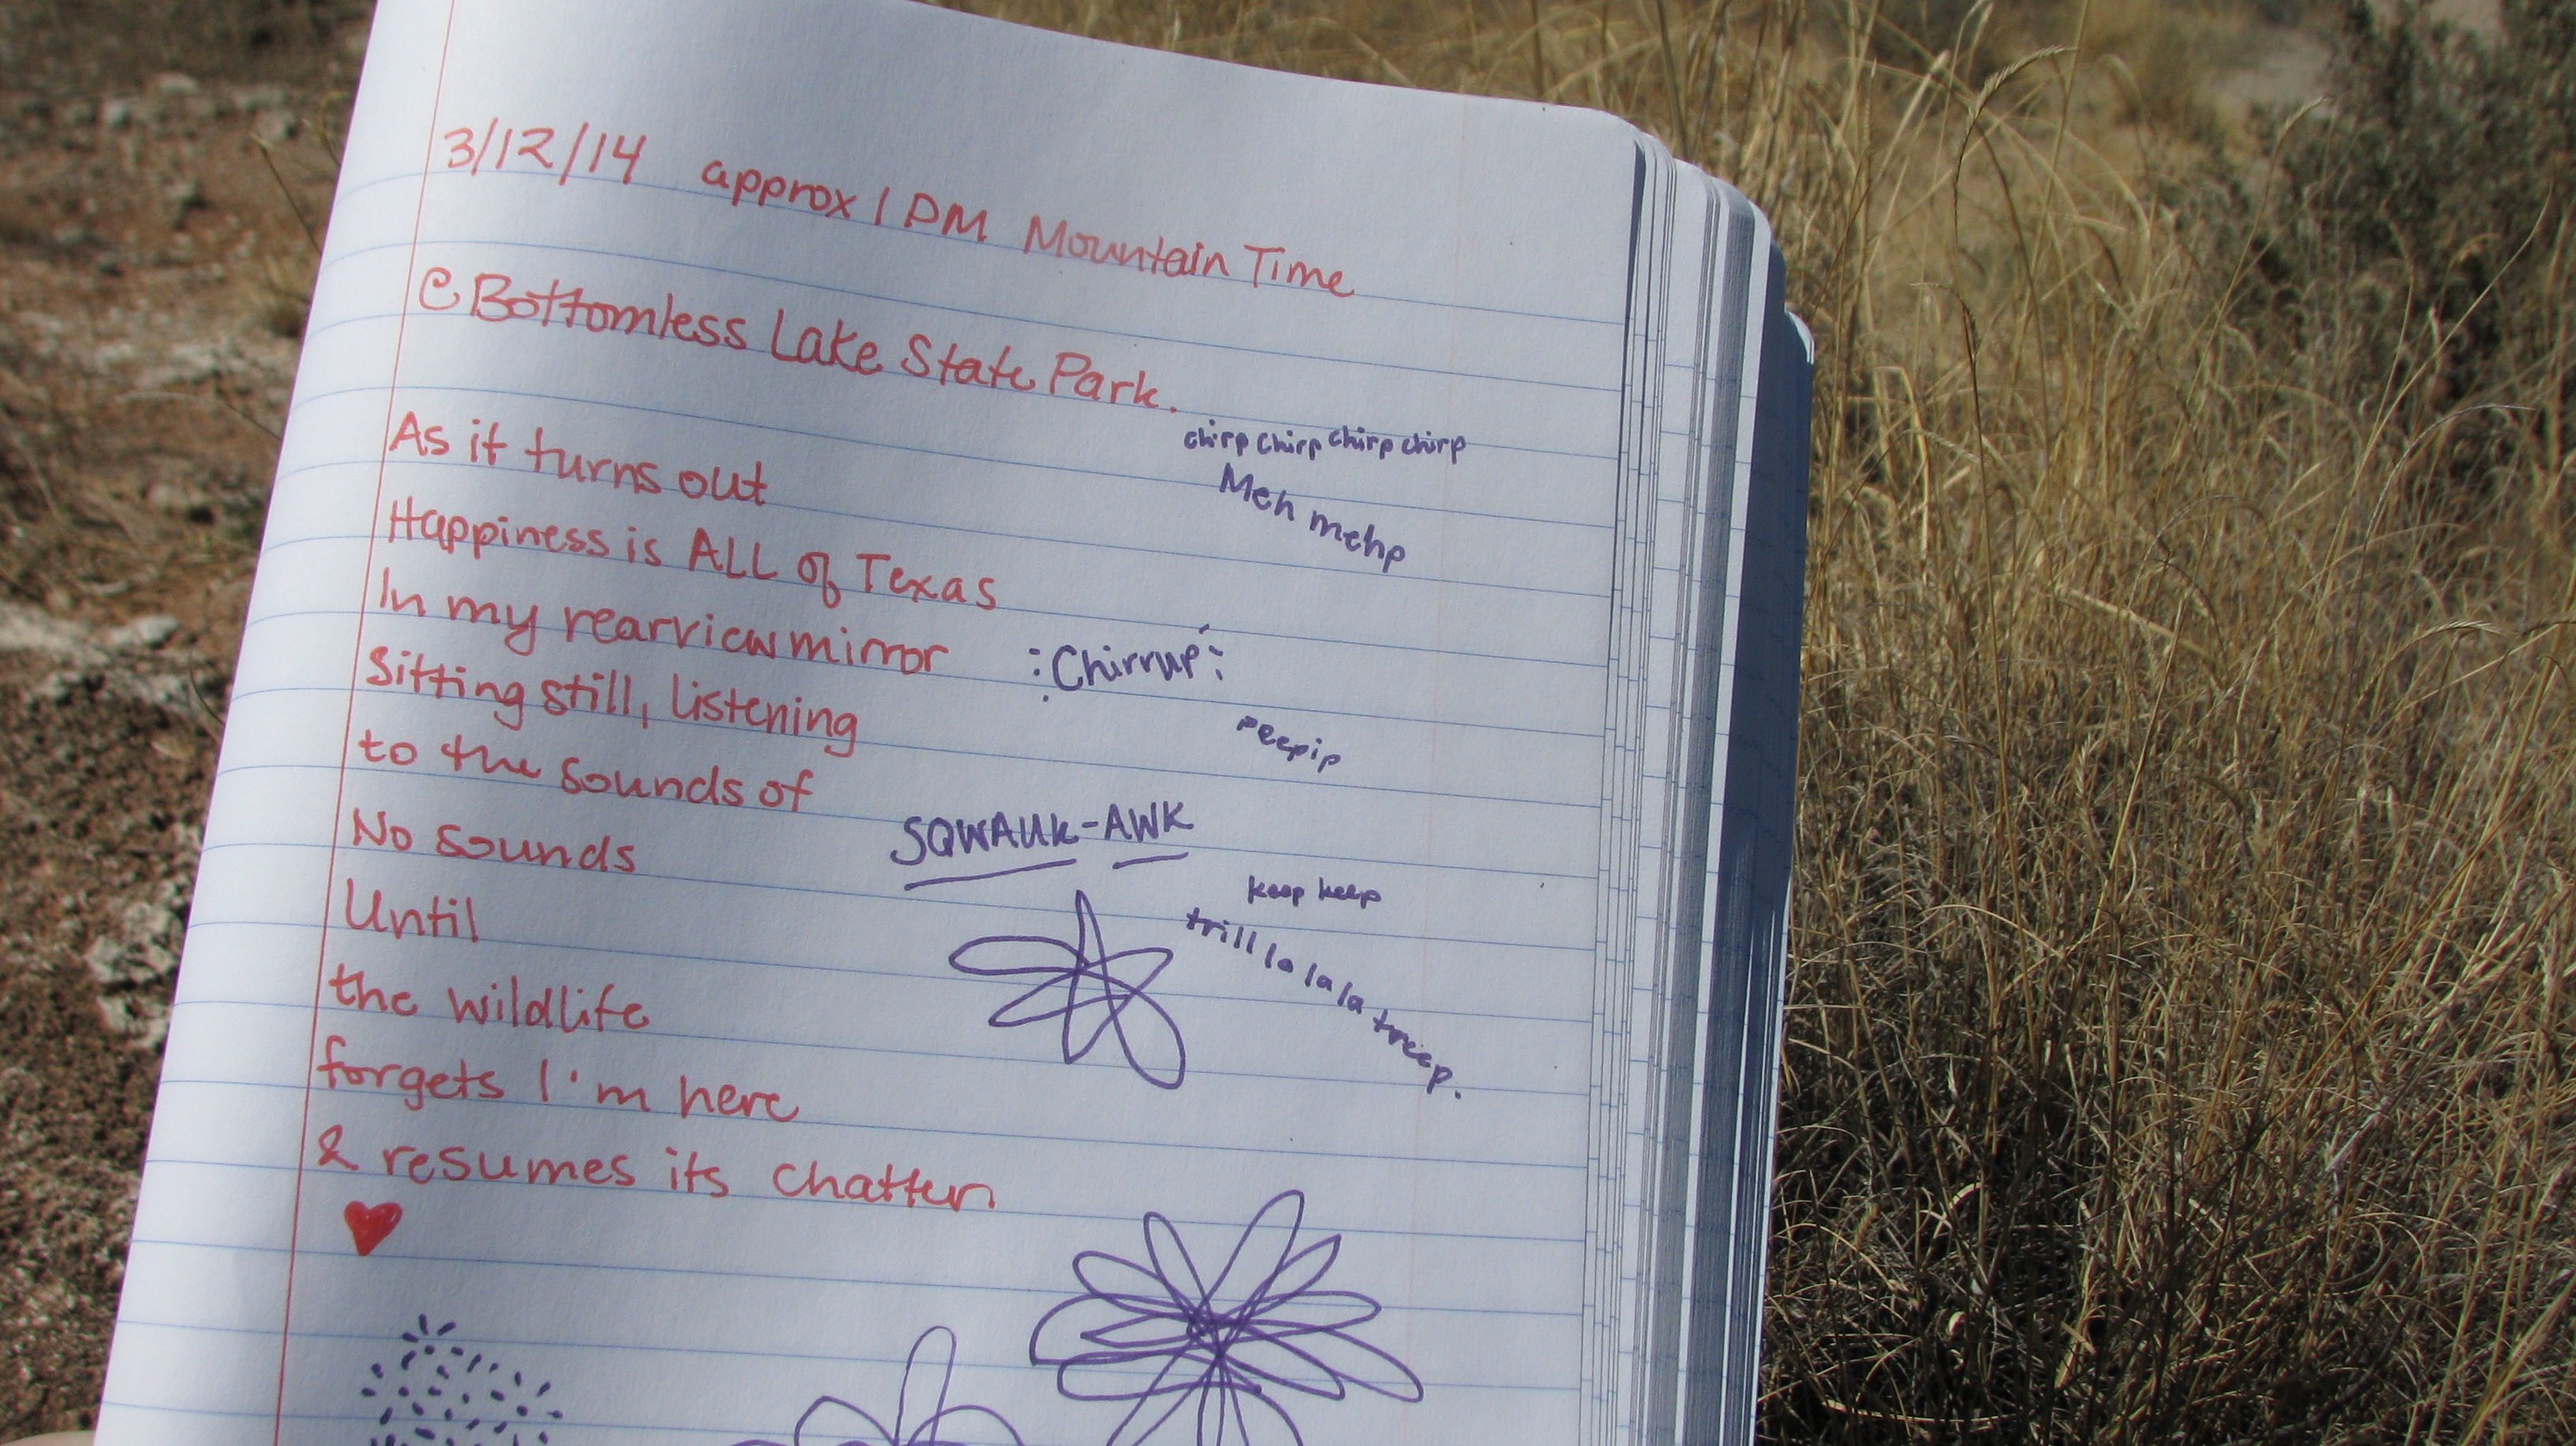 3/12/14 approx 1 PM Mountain Time
@ Bottomless Lake State Park.
As it turns out
Happiness is ALL of Texas
In my rearview mirror
Sitting still, listening
to the sounds of
No sounds
Until
the wildlife
forgets I'm here
& resumes its chatter
chirp chirp chirp chirp
Meh mehp
:Chirrup:
peepip
SQWAUK-AWK
keep keep
trill la la la la treep.